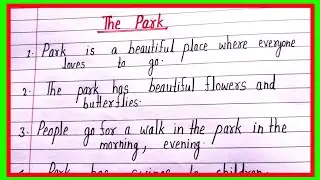 The Park
1. Park is a beautiful place where everyone
loves to go.
2. The park has beautiful flowers and
butterflies.
3. People go for a walk in the park in the
morning, evening.
4. Park has swings to children